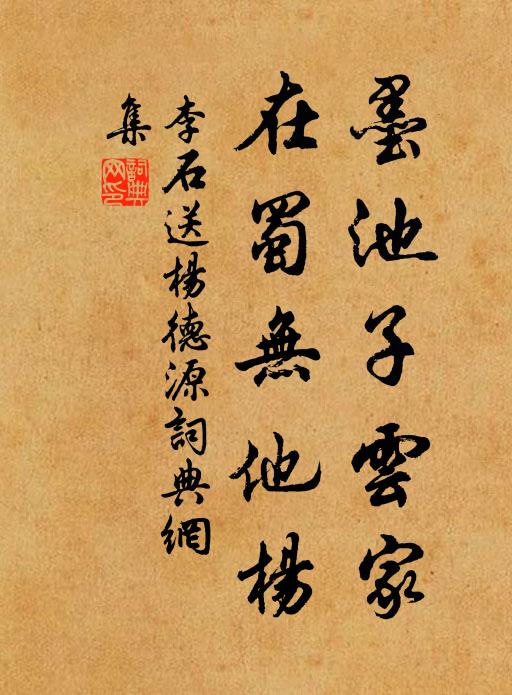 墨池子雲家
在蜀無他楊
李石送楊德源詞典網
集
詞典網印